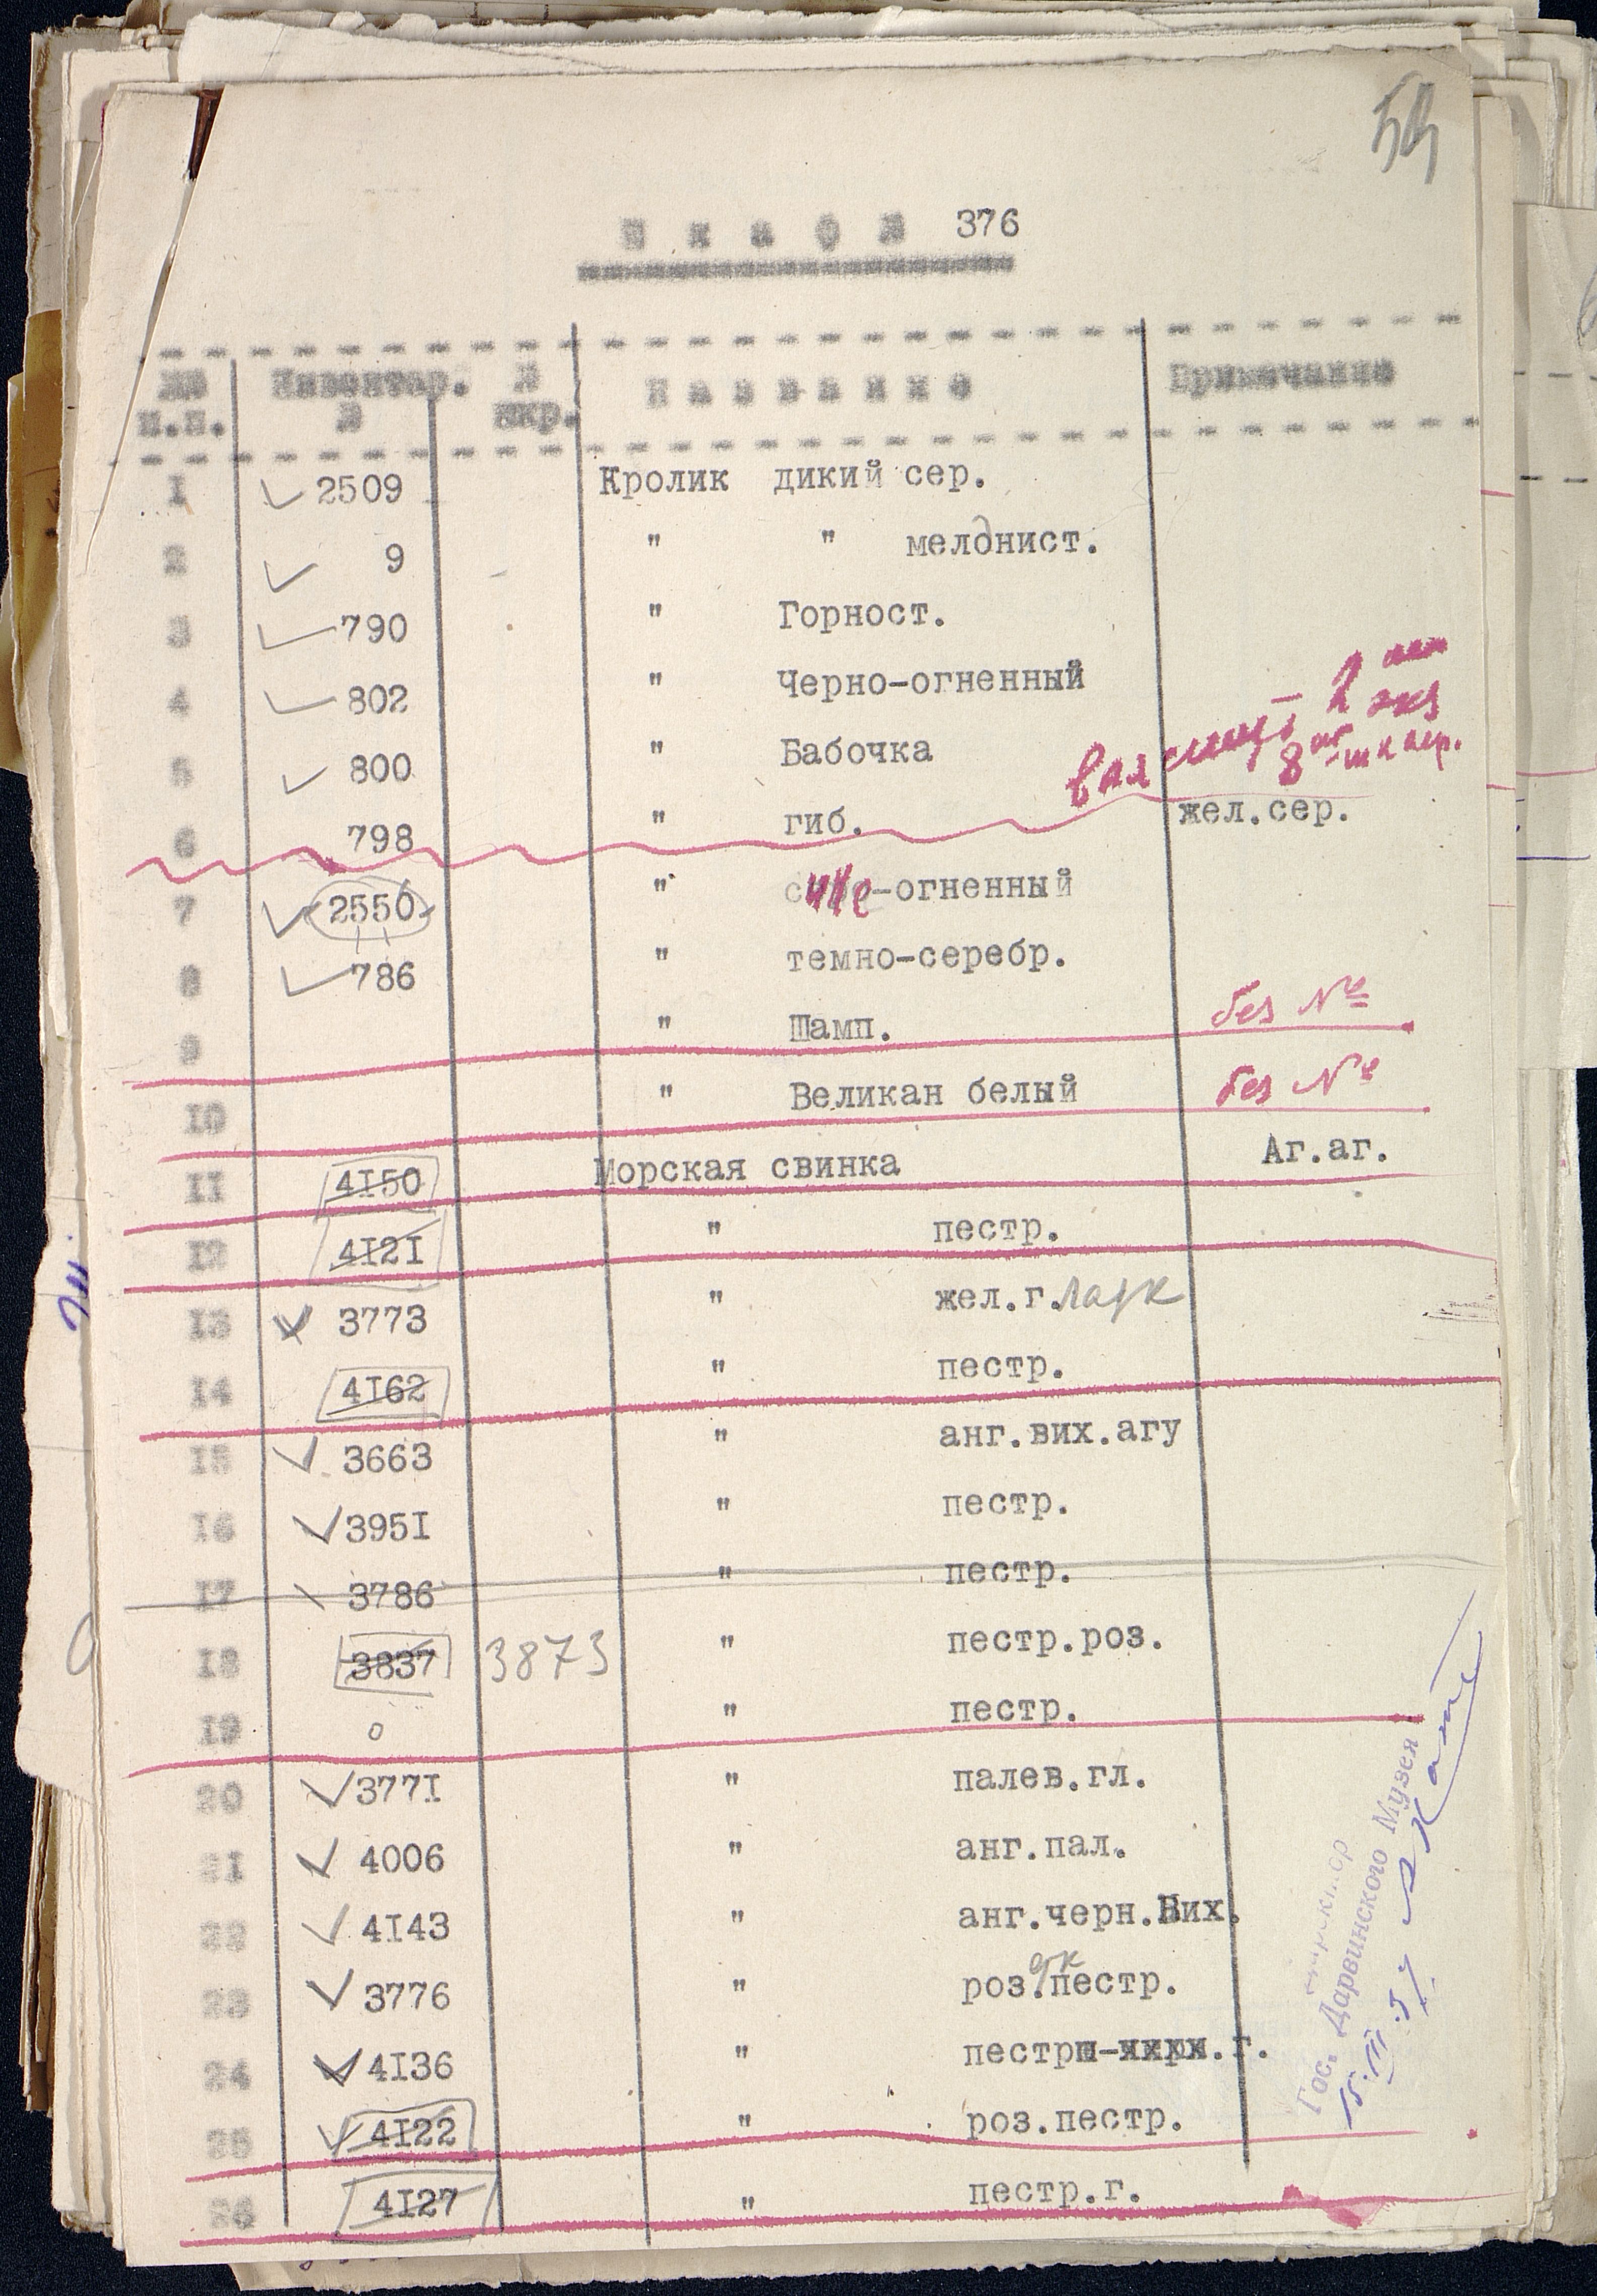 Шкаф № 376
№№ Инвентар. № Название Примечание
п.п. № шкр.
I 2509 Кролик дикий сер.
2 9 " " мелднист.
3 790 " Горност.
4 802 " Черно-огненный
5 800 " Бабочка
2 экз
6 798 " гиб. жел.сер.
7 2550 " сине-огненный
8 786 " темно-серебр.
9 " Шамп. без №
IO " Великан белый без №
II 4I50 Морская свинка Аг.аг.
I2 4I2I " пестр.
I3 3773 " жел.г.ладк
I4 4I62 " пестр.
I5 3663 " анг.вих.агу
I6 395I " пестр.
I7 3786 " пестр.
I8 3837 3873 " пестр.роз.
I9 о " пестр.
20 377I " палев.гл.
2I 4006 " анг.пал.
22 4I43 " анг.черн.Вих.
23 3776 " роз.пестр.
24 4I36 " пестр г.
25 4I22 " роз.пестр.
26 4I27 " пестр.г.
Директор
Гос. Дарвинского Музея